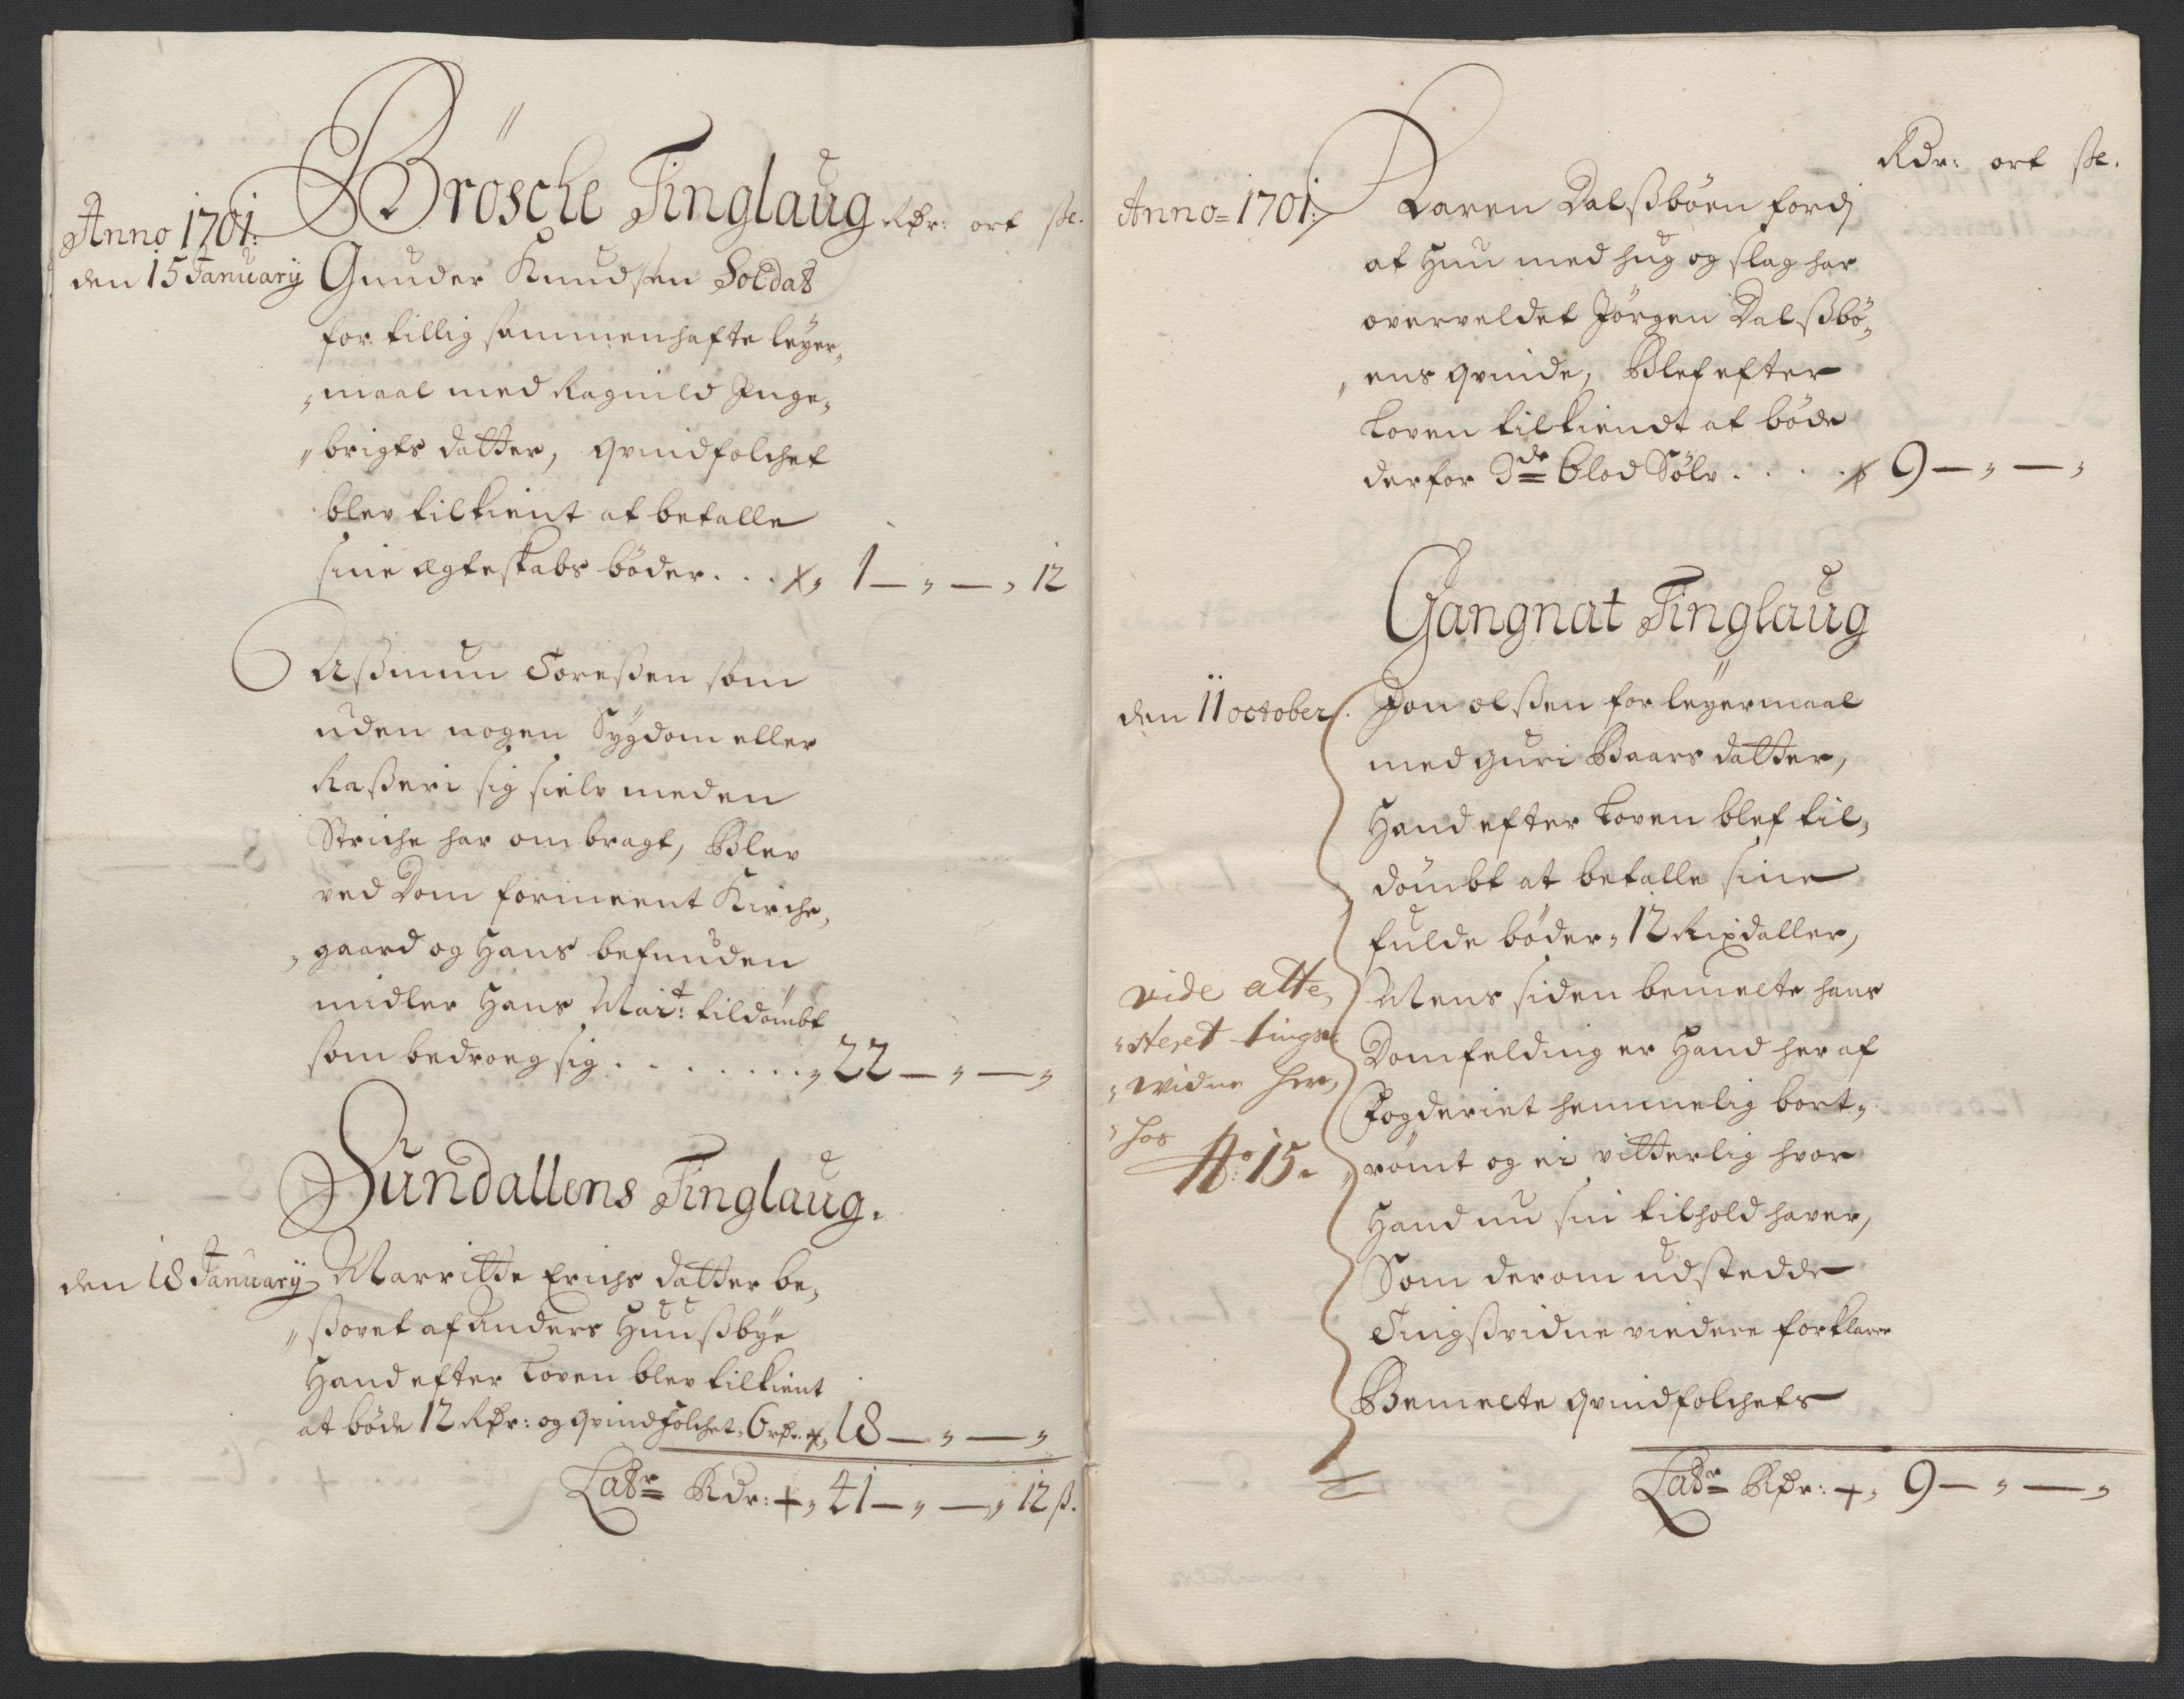 Brösche Tinglaug Rdr: ort ße.
Anno 1701:
den 15 January Gunder Knudsen Soldat
for tillig sammenhafte leyer„
„maal med Ragnild Inge„
„brigts datter, qvindfolchet
blev tilkient at betalle
sine egteskabs böder . . . 1 — „ — „ 12
Aßmun Toreßen som
uden nogen Sÿgdom eller
Raßeri sig sielv med en
Striche har ombragt, Blev
ved Dom formeent Kirche„
„gaard og Hans befunden
midler Hans Mai:t tildömbt
som bedroeg sig . . . . . . . . „ 22 — „ — „
Sundallens Tinglaug.
den 18 January Marritte Erichs datter be„
„ßovet af Anders Huußbÿe
Hand efter Loven blev tilkient
at böde 12 Rdr: og qvindfolchet 6 rd. 18 — „ — „
Lat:r Rdr: „ 41 — „ — „ 12 ß.
Rdr: ort ße.
Anno = 1701: Karen Dalßböen fordj
at Hun med hug og slag har
overveldet Jörgen Dalßbö„
„ens qvinde, Blef efter
Loven tilkiendt at böde
derfor 3de blod Sölv . . . . . 9 — „ — „
Gangnat Tinglaug
den 11 october. Jon olßen for leÿermaal
med Guri Baars datter,
Hand efter Loven blef til„
dömbt at betalle sine
fulde böder „ 12 Rixdaller,
Mens siden bemelte hans
Domfelding er Hand her af
Fogderiet hemmelig bort„
„römt og ei vitterlig hvor
Hand nu sin tilhold haver,
Som derom udstedde
Tingßvidne viedere forklarer
Bemelte qvindfolchets
vide atte„
„steret tings„
„widne her„
„hos
No: 15.
Lat:r Rdr: „ 9 — „ — „